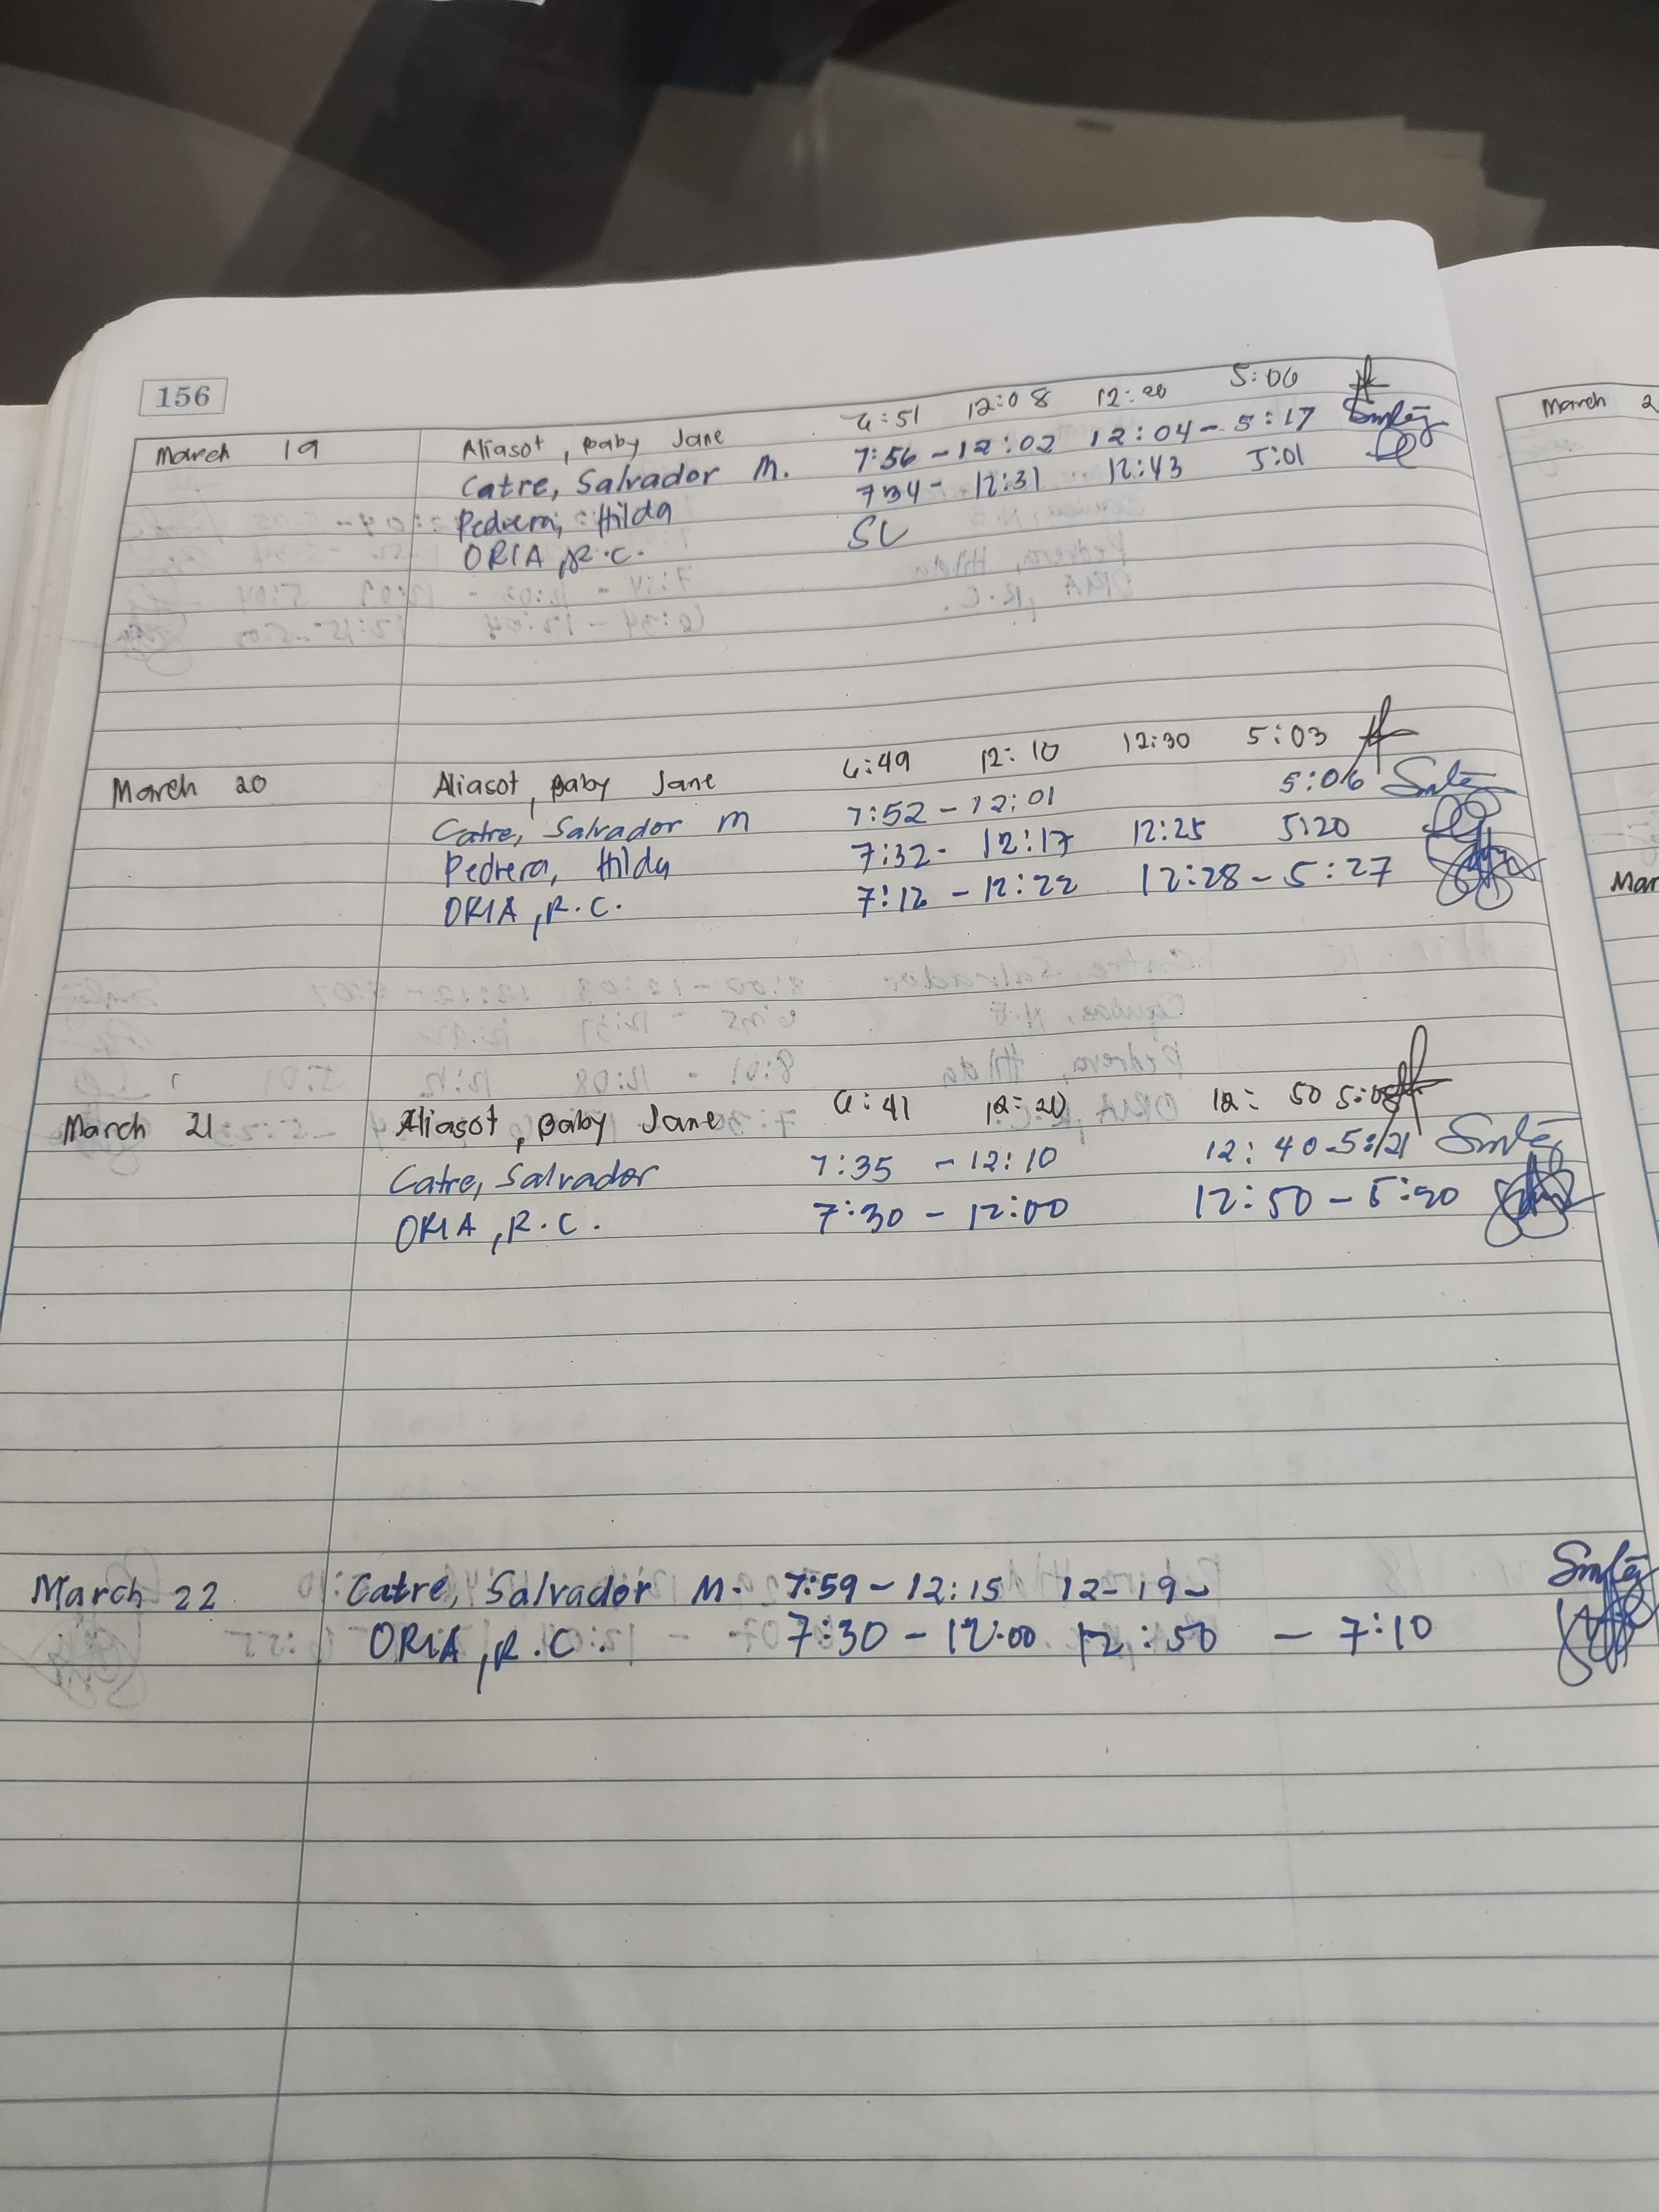 156
March 19 Aliasot, Baby Jane 6:51 12:08 12:20 5:06
Catre, Salvador M. 7:56 - 12:02 12:04 - 5:17
Pedrera, Hilda 7:34 - 12:31 12:43 5:01
ORIA, R.C. SL
March 20 Aliasot, Baby Jane 6:49 12:10 12:30 5:03
Catre, Salvador M 7:52 - 12:01 5:06
Pedrera, Hilda 7:32 - 12:17 12:25 5:20
ORIA, R.C. 7:12 - 12:22 12:28 - 5:27
March 21 Aliasot, Baby Jane 6:41 12:20 12:50 5:08
Catre, Salvador 7:35 - 12:10 12:40 - 5:21
ORIA, R.C. 7:30 - 12:00 12:50 - 5:20
March 22 Catre, Salvador M. 7:59 - 12:15 12-19-
ORIA, R.C. 7:30 - 12:00 12:50 - 7:10
March 2
Mar